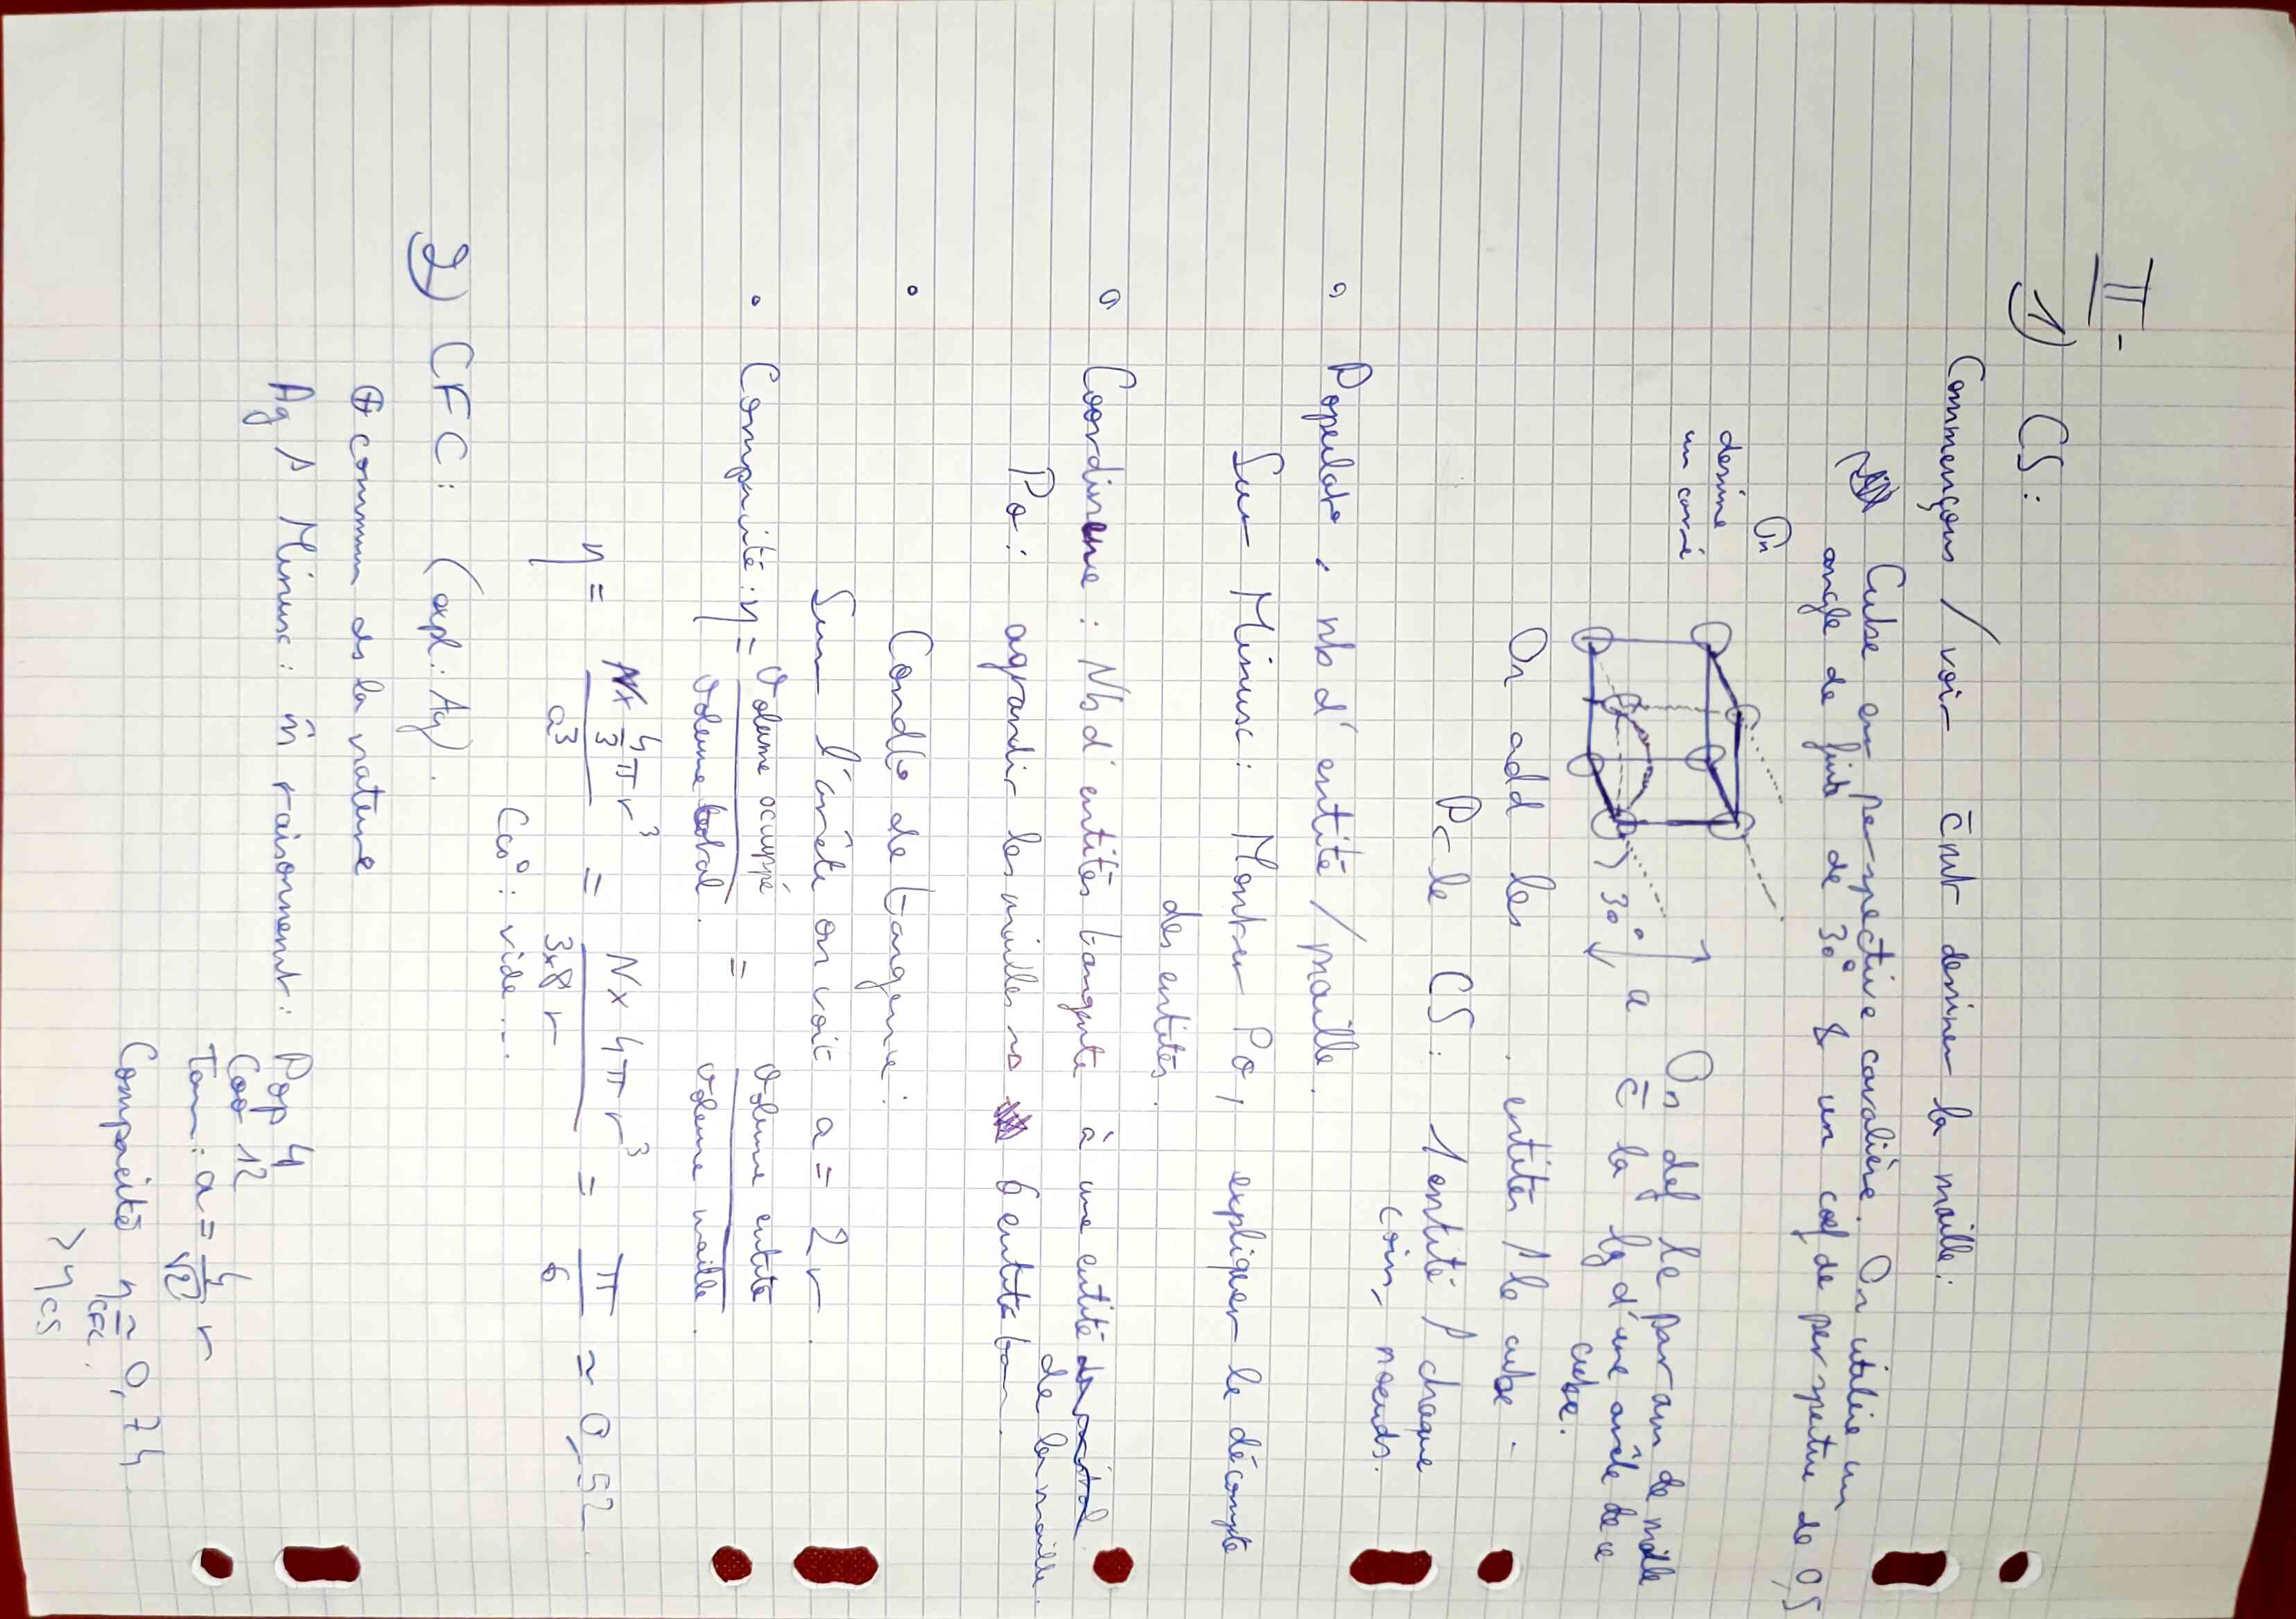 II-
1) CS:
Commençons / voir c̄mt dessiner la maille:
Cube en perspective cavalière. On utilise un
angle de fuite de 30° & un coef de perspective de 0,5
On
dessine
un carré
30°
a
On def le param de maille
c̄ la lg d'une arête de ce
cube.
On add les entités / le cube.
Pr le CS: 1 entité / chaque
coin, noeuds.
• Populat°, nb d'entité / maille.
Sur Minusc: Montrer Po, expliquer le décompte
des entités.
• Coordinence: Nb d'entités tangente à une entité
de la maille.
Po: agrandir les mailles 6 entités tan.
• Condit° de tangence:
Sur l'arête on voit a = 2r.
• Compacité: η = Volume occuppé / Volume total. = Volume entité / Volume maille.
η = N x 4/3 π r³ / a³ = N x 4 π r³ / 3x8 r = π / 6 ≈ 0,52.
Cas°: vide...
2) CFC: (expl: Ag).
⊕ commun ds la nature
Ag / Minusc: m̂ raisonnement: Pop 4
Coo 12
Tan: a = 4/√2 r
Compacité η CFC ≈ 0,74
> η CS